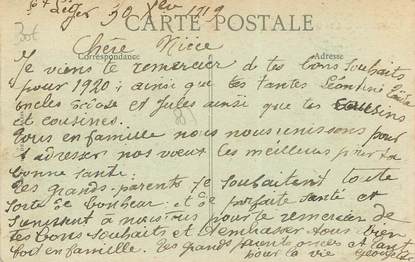 St Léger 30 Xbre 1919
CARTE POSTALE
306
Chère Nièce
Correspondance
Adresse
Je viens te remercier de tes bons souhaits
pour 1920; ainsi que tes tantes Léontine
oncles et Jules ainsi que tes cousins
et cousines.
Tous en famille nous nous unissons pour
t'adresser nos vœux les meilleurs pour ta
bonne santé.
Tes grands-parents te souhaitent toute
sorte de bonheur et de parfaite santé et
s'unissent à nous tous pour te remercier de
tes bons souhaits et t'embrasser tous bien
fort en famille. Tes grands parents oncles et tantes
pour la vie Georges